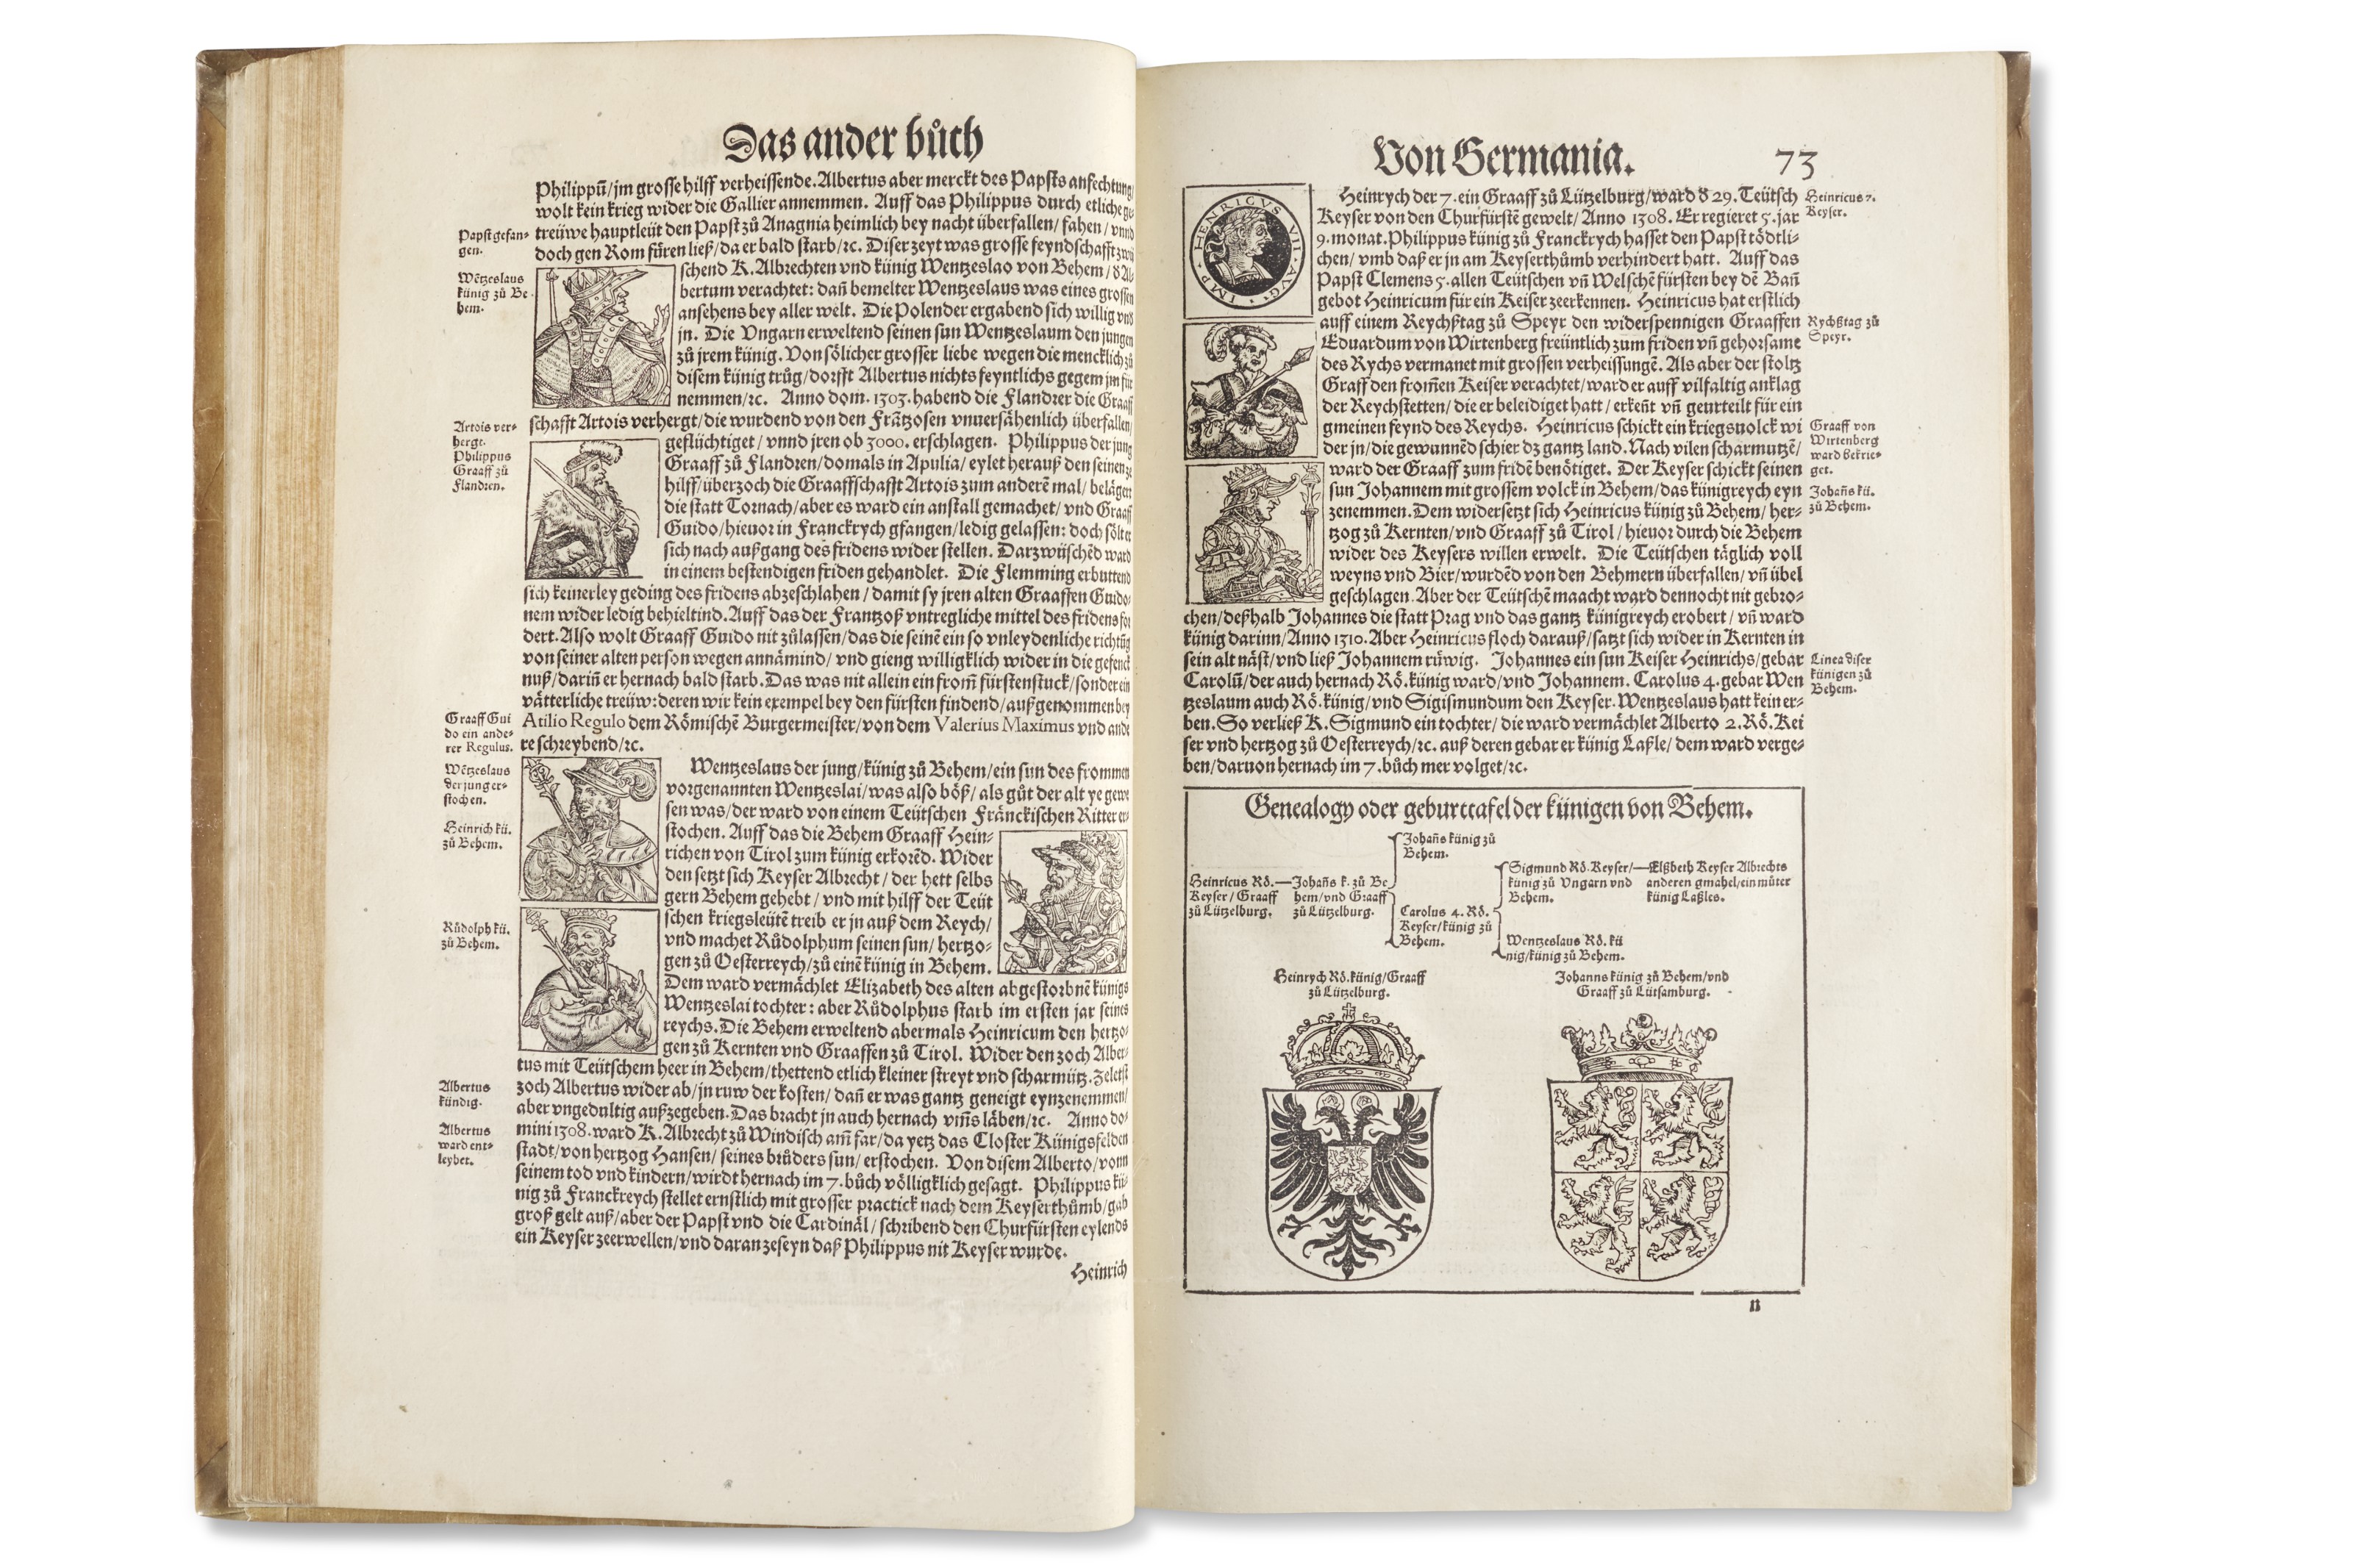 Das ander bůch
Philippū/jm grosse hilff verheissende. Albertus aber merckt des Papsts anfechtung/
wolt kein krieg wider die Gallier annemmen. Auff das Philippus durch etliche ge-
treüwe hauptleüt den Papst zů Anagnia heimlich bey nacht überfallen/fahen/vnnd
doch gen Rom füren ließ/da er bald starb/ꝛc. Diser zeyt was grosse feyndschafft zwü
Papst gefan-
gen.
schend K. Albrechten vnd künig Wentzeslao von Behem/
bertum verachtet: dañ bemelter Wentzeslaus was eines grossen
ansehens bey aller welt. Die Polender ergabend sich willig vnd
jn. Die Vngarn erweltend seinen sun Wentzeslaum den jungen
zů jrem künig. Von sölicher grosser liebe wegen die mencklich zů
disem künig trůg/dorfft Albertus nichts feyntlichs gegem jm für
nemmen/ꝛc. Anno dom. 1303. habend die Flandrer die Graaff
Wētzeslaus
künig zů Be-
hem.
schafft Artois verhergt/die wurdend von den Frātzosen vnuersähenlich überfallen/
geflüchtiget/vnnd jren ob 3000. erschlagen. Philippus der jung
Graaff zů Flandren/domals in Apulia/eylet herauß den seinen ze
hilff/überzoch die Graaffschafft Artois zum anderē mal/belägert
die statt Tornach/aber es ward ein anstall gemachet/vnd Graaff
Guido/hieuor in Franckrych gfangen/ledig gelassen: doch sölt er
sich nach außgang des fridens wider stellen. Darzwüschēd ward
in einem bestendigen friden gehandlet. Die Flemming erbuttend
Artois ver-
hergt.
Philippus
Graaff zů
Flandren.
sich keinerley geding des fridens abzeschlahen/damit sy jren alten Graaffen Guido-
nem wider ledig behieltind. Auff das der Frantzoß vntregliche mittel des fridens for
dert. Also wolt Graaff Guido nit zůlassen/das die seinē ein so vnleydenliche richtūg
von seiner alten person wegen annämind/vnd gieng willigklich wider in die gefenck
nuß/dariñ er hernach bald starb. Das was nit allein ein from̄ fürstenstuck/sonder ein
vätterliche treüw: deren wir kein exempel bey den fürsten findend/außgenommen bey
Atilio Regulo dem Römischē Burgermeister/von dem Valerius Maximus vnd ande
re schreybend/ꝛc.
Graaff Gui
do ein ande-
rer Regulus.
Wentzeslaus der jung/künig zů Behem/ein sun des frommen
vorgenannten Wentzeslai/was also böß/als gůt der alt ye gewe
sen was/der ward von einem Teütschen Fränckischen Ritter er-
stochen. Auff das die Behem Graaff Hein-
richen von Tirol zum künig erkorēd. Wider
den setzt sich Keyser Albrecht/der hett selbs
gern Behem gehebt/vnd mit hilff der Teüt
schen kriegsleütē treib er jn auß dem Reych/
vnd machet Růdolphum seinen sun/hertzo-
gen zů Oesterreych/zů einē künig in Behem.
Dem ward vermächlet Elizabeth des alten abgestorbnē künigs
Wentzeslai tochter: aber Růdolphus starb im ersten jar seines
reychs. Die Behem erweltend abermals Heinricum den hertzo-
gen zů Kernten vnd Graaffen zů Tirol. Wider den zoch Alber-
Wētzeslaus
der jung er-
stochen.
Heinrich kü.
zů Behem.
Růdolph kü.
zů Behem.
tus mit Teütschem heer in Behem/thettend etlich kleiner streyt vnd scharmütz. Zeletst
zoch Albertus wider ab/jn ruw der kosten/dañ er was gantz geneigt eynzenemmen/
aber vngedultig außzegeben. Das bracht jn auch hernach vm̄s läben/ꝛc. Anno do-
mini 1308. ward K. Albrecht zů Windisch am̄ far/da yetz das Closter Künigsfelden
stadt/von hertzog Hansen/seines brůders sun/erstochen. Von disem Alberto/vonn
seinem tod vnd kindern/wirdt hernach im 7. bůch völligklich gesagt. Philippus kü-
nig zů Franckreych stellet ernstlich mit grosser practick nach dem Keyserthůmb/gab
groß gelt auß/aber der Papst vnd die Cardinäl/schribend den Churfürsten eylends
ein Keyser zeerwellen/vnd daran zeseyn daß Philippus nit Keyser wurde.
Albertus
kündig.
Albertus
ward ent-
leybet.
Heinrich
Von Germania. 73
IMP · HENRICVS VII · AVG ·
Heinrych der 7. ein Graaff zů Lützelburg/ward d 29. Teütsch
Keyser von den Churfürstē gewelt/Anno 1308. Er regieret 5. jar
9. monat. Philippus künig zů Franckrych hasset den Papst tödtli-
chen/vmb daß er jn am Keyserthůmb verhindert hatt. Auff das
Papst Clemens 5. allen Teütschen vñ Welschē fürsten bey dē Bañ
gebot Heinricum für ein Keiser zeerkennen. Heinricus hat erstlich
auff einem Reychßtag zů Speyr den widerspennigen Graaffen
Eduardum von Wirtenberg freüntlich zum friden vñ gehorsame
des Rychs vermanet mit grossen verheissungē. Als aber der stoltz
Graff den from̄en Keiser verachtet/ward er auff vilfaltig anklag
der Reychstetten/die er beleidiget hatt/erkeñt vñ geurteilt für ein
gmeinen feynd des Reychs. Heinricus schickt ein kriegsuolck wi
der jn/die gewunnēd schier dz gantz land. Nach vilen scharmutzē/
ward der Graaff zum fridē benötiget. Der Keyser schickt seinen
sun Johannem mit grossem volck in Behem/das künigreych eyn
zenemmen. Dem widersetzt sich Heinricus künig zů Behem/her-
tzog zů Kernten/vnd Graaff zů Tirol/hieuor durch die Behem
wider des Keysers willen erwelt. Die Teütschen täglich voll
weyns vnd Bier/wurdēd von den Behmern überfallen/vñ übel
geschlagen. Aber der Teütschē maacht ward dennocht nit gebro-
chen/deßhalb Johannes die statt Prag vnd das gantz künigreych erobert/vñ ward
künig darinn/Anno 1310. Aber Heinricus floch darauß/satzt sich wider in Kernten in
sein alt näst/vnd ließ Johannem rüwig. Johannes ein sun Keiser Heinrichs/gebar
Carolū/der auch hernach Rö. künig ward/vnd Johannem. Carolus 4. gebar Wen
tzeslaum auch Rö. künig/vnd Sigismundum den Keyser. Wentzeslaus hatt kein er-
ben. So verließ K. Sigmund ein tochter/die ward vermächlet Alberto 2. Rö. Kei
ser vnd hertzog zů Oesterreych/ꝛc. auß deren gebar er künig Laßle/dem ward verge-
ben/daruon hernach im 7. bůch mer volget/ꝛc.
Heinricus 7.
Keyser.
Rychßtag zů
Speyr.
Graaff von
Wirtenberg
ward bekrie-
get.
Johañs kü.
zů Behem.
Linea diser
künigen zů
Behem.
Genealogy oder geburttafel der künigen von Behem.
Heinricus Rö.
Keyser/Graaff
zů Lützelburg.
Johañs k. zů Be
hem/vnd Graaff
zů Lützelburg.
Johañs künig zů
Behem.
Carolus 4. Rö.
Keyser/künig zů
Behem.
Sigmund Rö. Keyser/
künig zů Vngarn vnd
Behem.
Wentzeslaus Rö. kü
nig/künig zů Behem.
Elßbeth Keyser Albrechts
anderen gmahel/ein můter
künig Laßles.
Heinrych Rö. künig/Graaff
zů Lützelburg.
Johanns künig zů Behem/vnd
Graaff zů Lütsamburg.
n